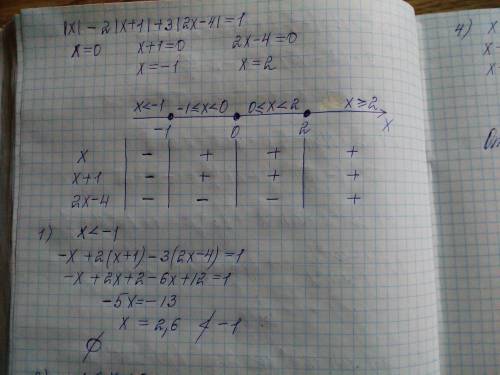 |x| - 2|x+1| + 3|2x-4| = 1
x=0 x+1=0 2x-4=0
x=-1 x=2
x<-1 -1≤x<0 0≤x<2 x≥2
-1 0 2 x
x - + + +
x+1 - + + +
2x-4 - - - +
1) x<-1
-x+2(x+1)-3(2x-4)=1
-x+2x+2-6x+12=1
-5x=-13
x = 2,6 ≮ -1
∅
4) x
x
x